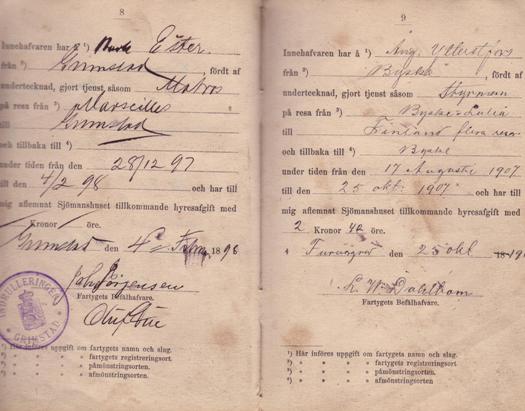 8
Innehafvaren har å ¹) Bark Ester.
från ²) Grimstad, fördt af
undertecknad, gjort tjenst såsom Matros
på resa från ³) Marseille
till Grimstad
och tillbaka till ⁴)
under tiden från den 28/12 97
till den 4/2 98 och har till
mig aflemnat Sjömanshuset tillkommande hyresafgift med
Kronor öre.
Grimstad den 4 1898
Jørgensen
Fartygets Befälhafvare.
INDRULLERINGEN
GRIMSTAD
¹) Här införes uppgift om fartygets namn och slag.
²) » » » fartygets registreringsort.
³) » » » påmönstringsorten.
⁴) » » » afmönstringsorten.
9
Innehafvaren har å ¹) Ång.
från ²) Byske, fördt af
undertecknad, gjort tjenst såsom Styrman
på resa från ³) Byske - Luleå
till Finland flera resor
och tillbaka till ⁴) Byske
under tiden från den 17 Augusti 1907
till den 25 okt 1907 och har till
mig aflemnat Sjömanshuset tillkommande hyresafgift med
2 Kronor 42 öre.
den 25 okt 18
Fartygets Befälhafvare.
¹) Här införes uppgift om fartygets namn och slag.
²) » » » fartygets registreringsort
³) » » » påmönstringsorten.
⁴) » » » afmönstringsorten